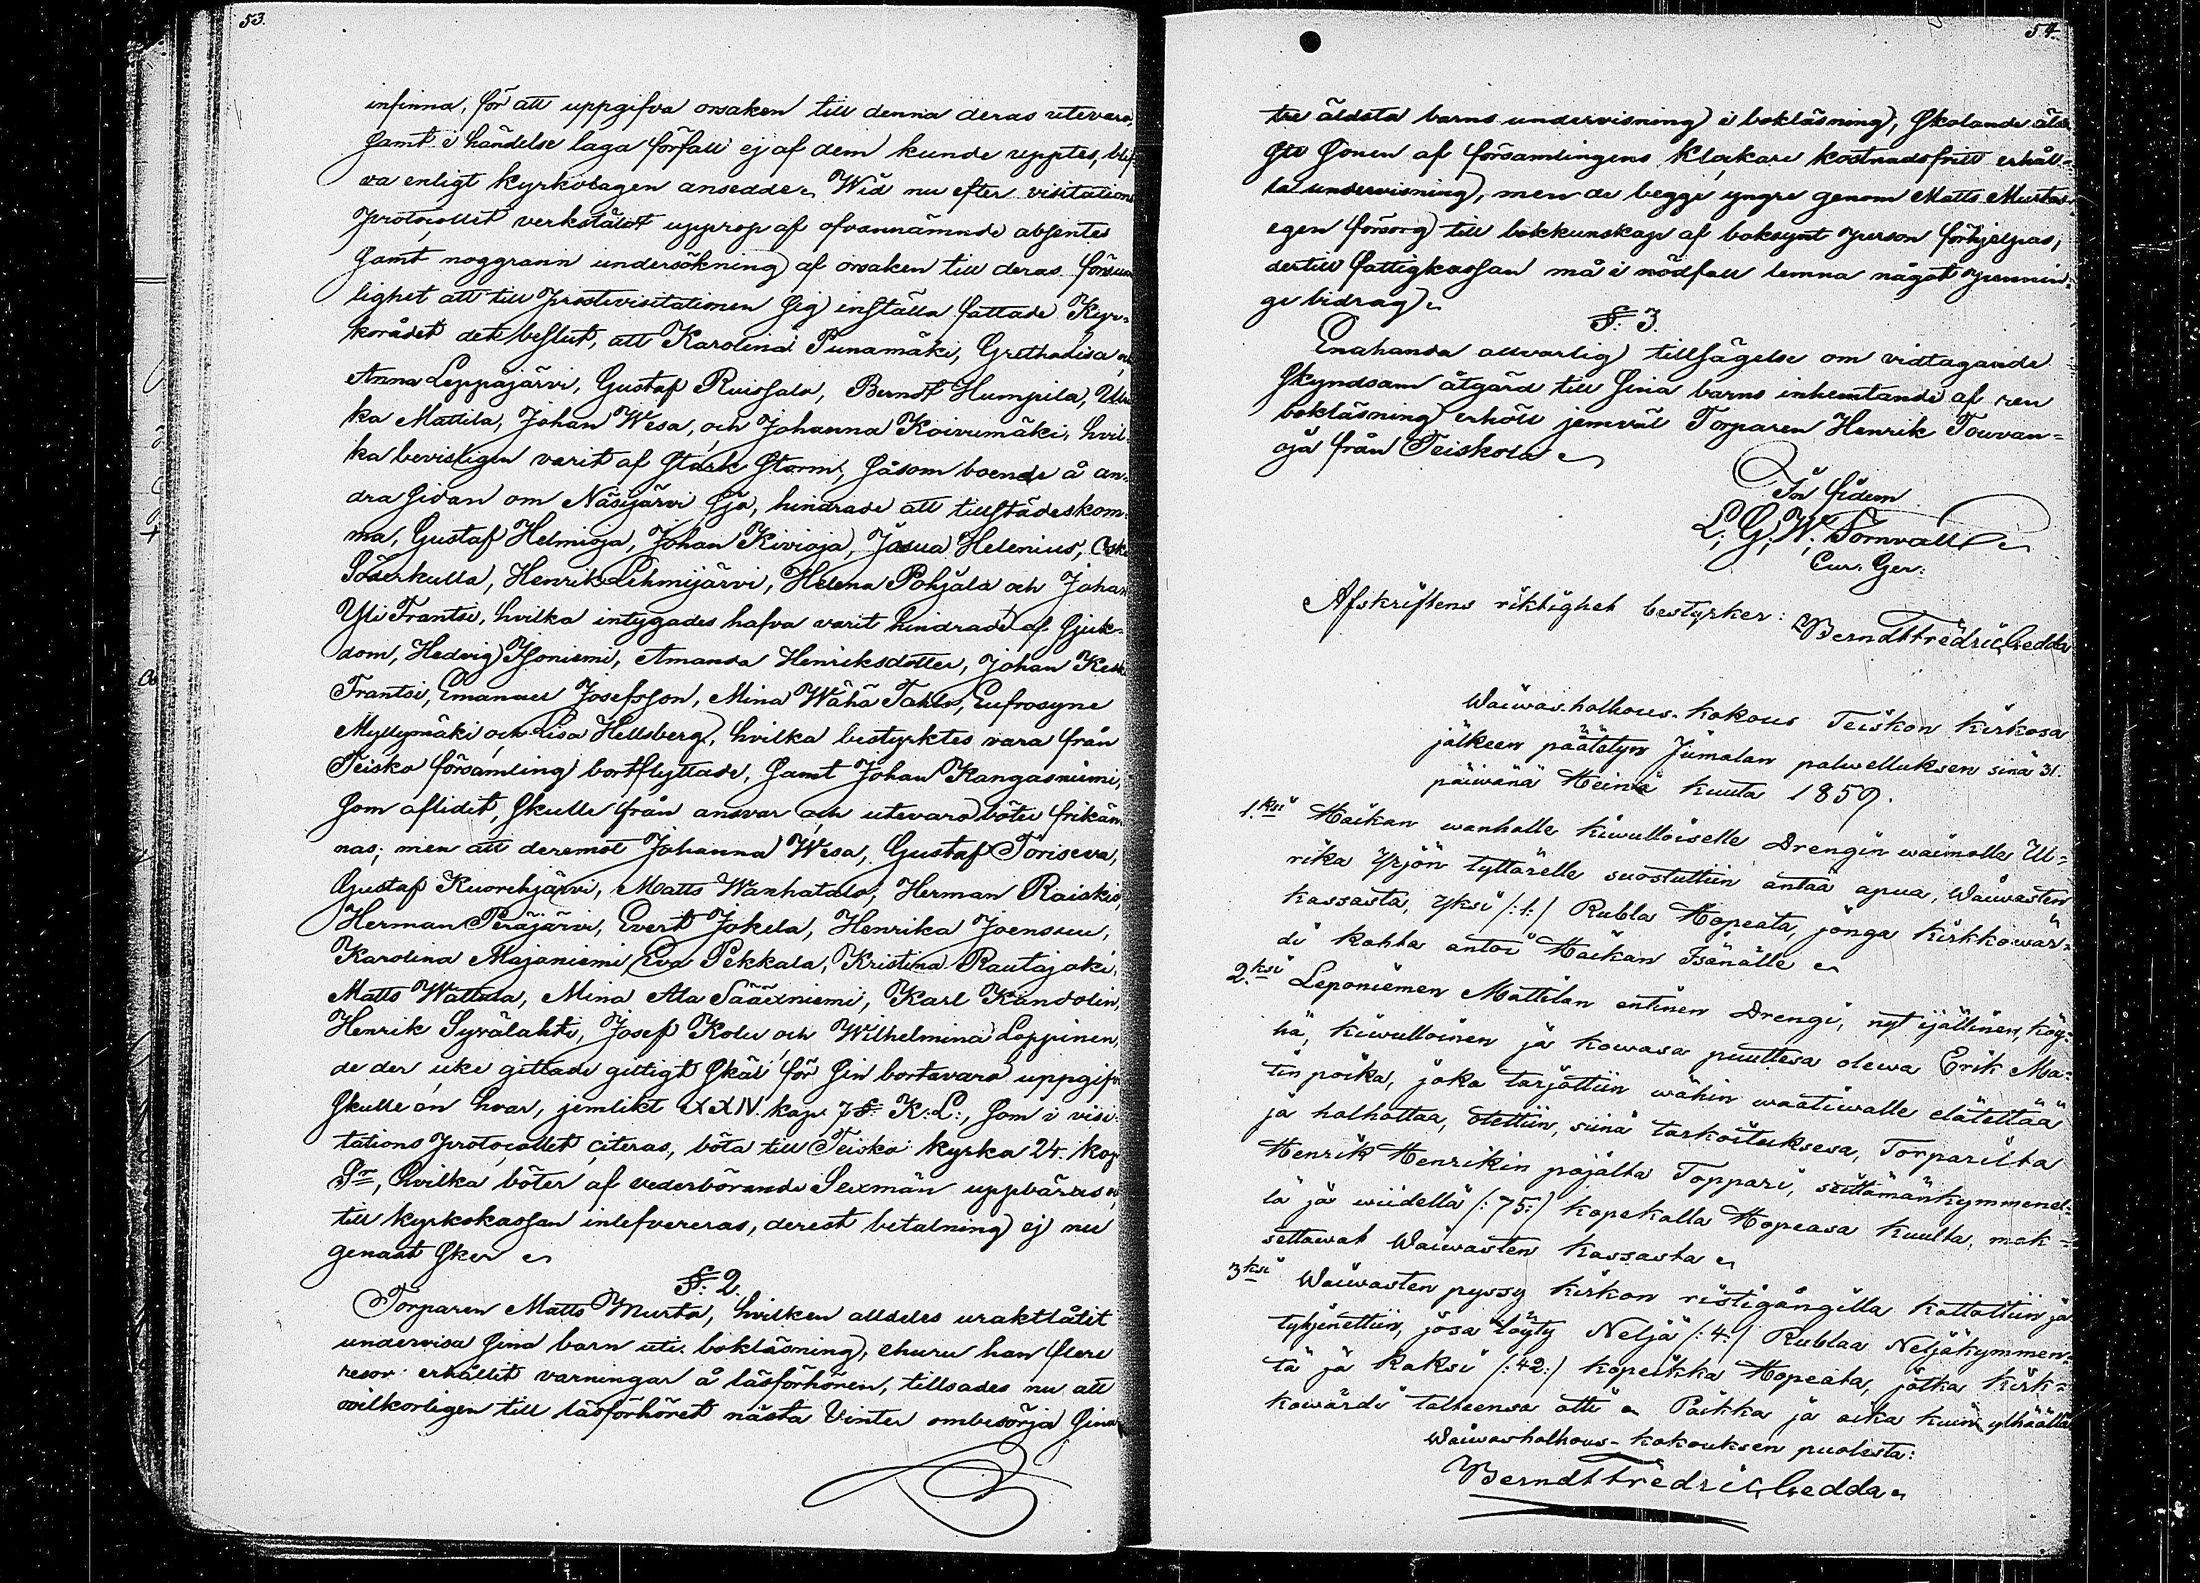 53.
infinna, för att uppgifva orsaken till denna deras utevaro,
samt i händelse laga förfall ej af dem kunde upptes, blif-
va enligt kyrkolagen ansedde. Wid nu efter visitations
protocollet verkstäldt upprop af ofvannämnde absentes
samt noggrann undersökning af orsaken till deras försum
lighet att till Prostvisitationen sig inställa fattade Kyr-
korådet det beslut, att Karolina Punamäki, Grethalisa och
Anna Leppäjärvi, Gustaf Ruissalo, Berndt Humpila, Ulri
ka Mattila, Johan Wesa, och Johanna Koivumäki, hvil
ka bevisligen varit af stark storm, såsom boende å an-
dra sidan om Näsijärvi sjö, hindrade att tillstädeskom-
ma, Gustaf Helmioja, Johan Kivioja, Josua Helenius,
Söderkulla, Henrik Lehmijärvi, Helena Pohjala och Johan
Yli Frantsi, hvilka intygades hafva varit hindrade af sjuk-
dom, Hedvig Isoniemi, Amanda Henriksdotter, Johan Keski
Frantsi, Emanuel Josefsson, Mina Wähä Tahlo, Eufrosyne
Myllymäki och Lisa Hellsberg, hvilka bestyrktes vara från
Teisko församling bortflyttade, samt Johan Kangasniemi,
som aflidit, skulle från ansvar och utevaro böter frikän-
nas; men att deremot Johanna Wesa, Gustaf Toriseva,
Gustaf Kuorehjärvi, Matts Wanhatalo, Herman Raiskio,
Herman Peräjärvi, Evert Jokela, Henrika Joensuu,
Karolina Majaniemi, Eva Pekkala, Kristina Rautajoki,
Matts Wattula, Mina Ala Sääxniemi, Karl Kändolin,
Henrik Syvälahti, Josef Kolu och Wilhelmina Loppinen,
de der icke gittade giltigt skäl för sin bortavaro uppgifva
skulle en hvar, jemlikt XXIV. kap. 7 §. K: L:, som i visi-
tations protocollet citeras, böta till Teisko kyrka 24. kop.
Sr, hvilka böter af vederbörande Sexmän uppbäras och
till kyrkokassan inlefvereras, derest betalning ej nu
genast sker
§: 2.
Torparen Matts Murto, hvilken alldeles uraktlåtit
undervisa sina barn uti bokläsning, churu han flere
resor erhållit varningar å läsförhören, tillsades nu att
ovilkorligen till läsförhöret nästa Vinter ombesörja sina
54.
tre äldsta barns undervisning i bokläsning, skolande älds
ste sonen af församlingens klockare kostnadsfritt erhål-
la undervisning, men de begge yngre genom Matts Murtos
egen försorg till bokkunskap af boksynt person förhjelpas,
dertill fattigkassan må i nödfall lemna något pennin-
ge bidrag.
§: 3.
Enahanda allvarlig tillsägelse om vidtagande
skyndsam åtgärd till sina barns inhemtande af ren
bokläsning erhöll jemväl Torparen Henrik Touvan-
oja från Teiskola
In fidem
L. G. W. Tornvall
Cur: Ger:
Afskriftens riktighet bestyrker: Berndt Fredric Gedda
Waiwas-holhous-kokous Teiskon kirkosa
jälkeen päätetyn Jumalan palwelluksen sinä 31.
päiwänä Heinä kuuta 1859.
1.ksi Haikan wanhalle kiwulloiselle Drengin waimolle Ul-
rika Yrjön tyttärelle suostuttiin antaa apua, Waiwasten
kassasta, Yksi /: 1:/ Rubla Hopeata, jonga kirkkowär-
di kohta antoi Haikan Isänälle
2.ksi Leponiemen Mattilan entinen Drengi, nyt ijällinen, köy-
hä, kiwulloinen ja kowasa puuttesa olewa Erik Ma-
tin poika, joka tarjottiin wähin waatiwalle elätettää
ja holhottaa, otettiin, siinä tarkoituksesa, Torparilta
Henrik Henrikin pojalta Toppari, seittämänkymmenel-
lä ja wiidellä /: 75:/ kopekalla Hopeasa kuulta, mak-
settawat Waiwasten kassasta
3ksi Waiwasten pyssy kirkon ristigångilla kattottiin ja
tyhjenettiin, josa löyty Neljä /: 4:/ Rublaa Neljäkymmen-
tä ja kaksi /: 42:/ kopeikka Hopeata, jotka kirk-
kowärdi talteensa otti Paikka ja aika kuin ylhäällä
Waiwasholhous-kokouksen puolesta:
Berndt Fredric Gedda